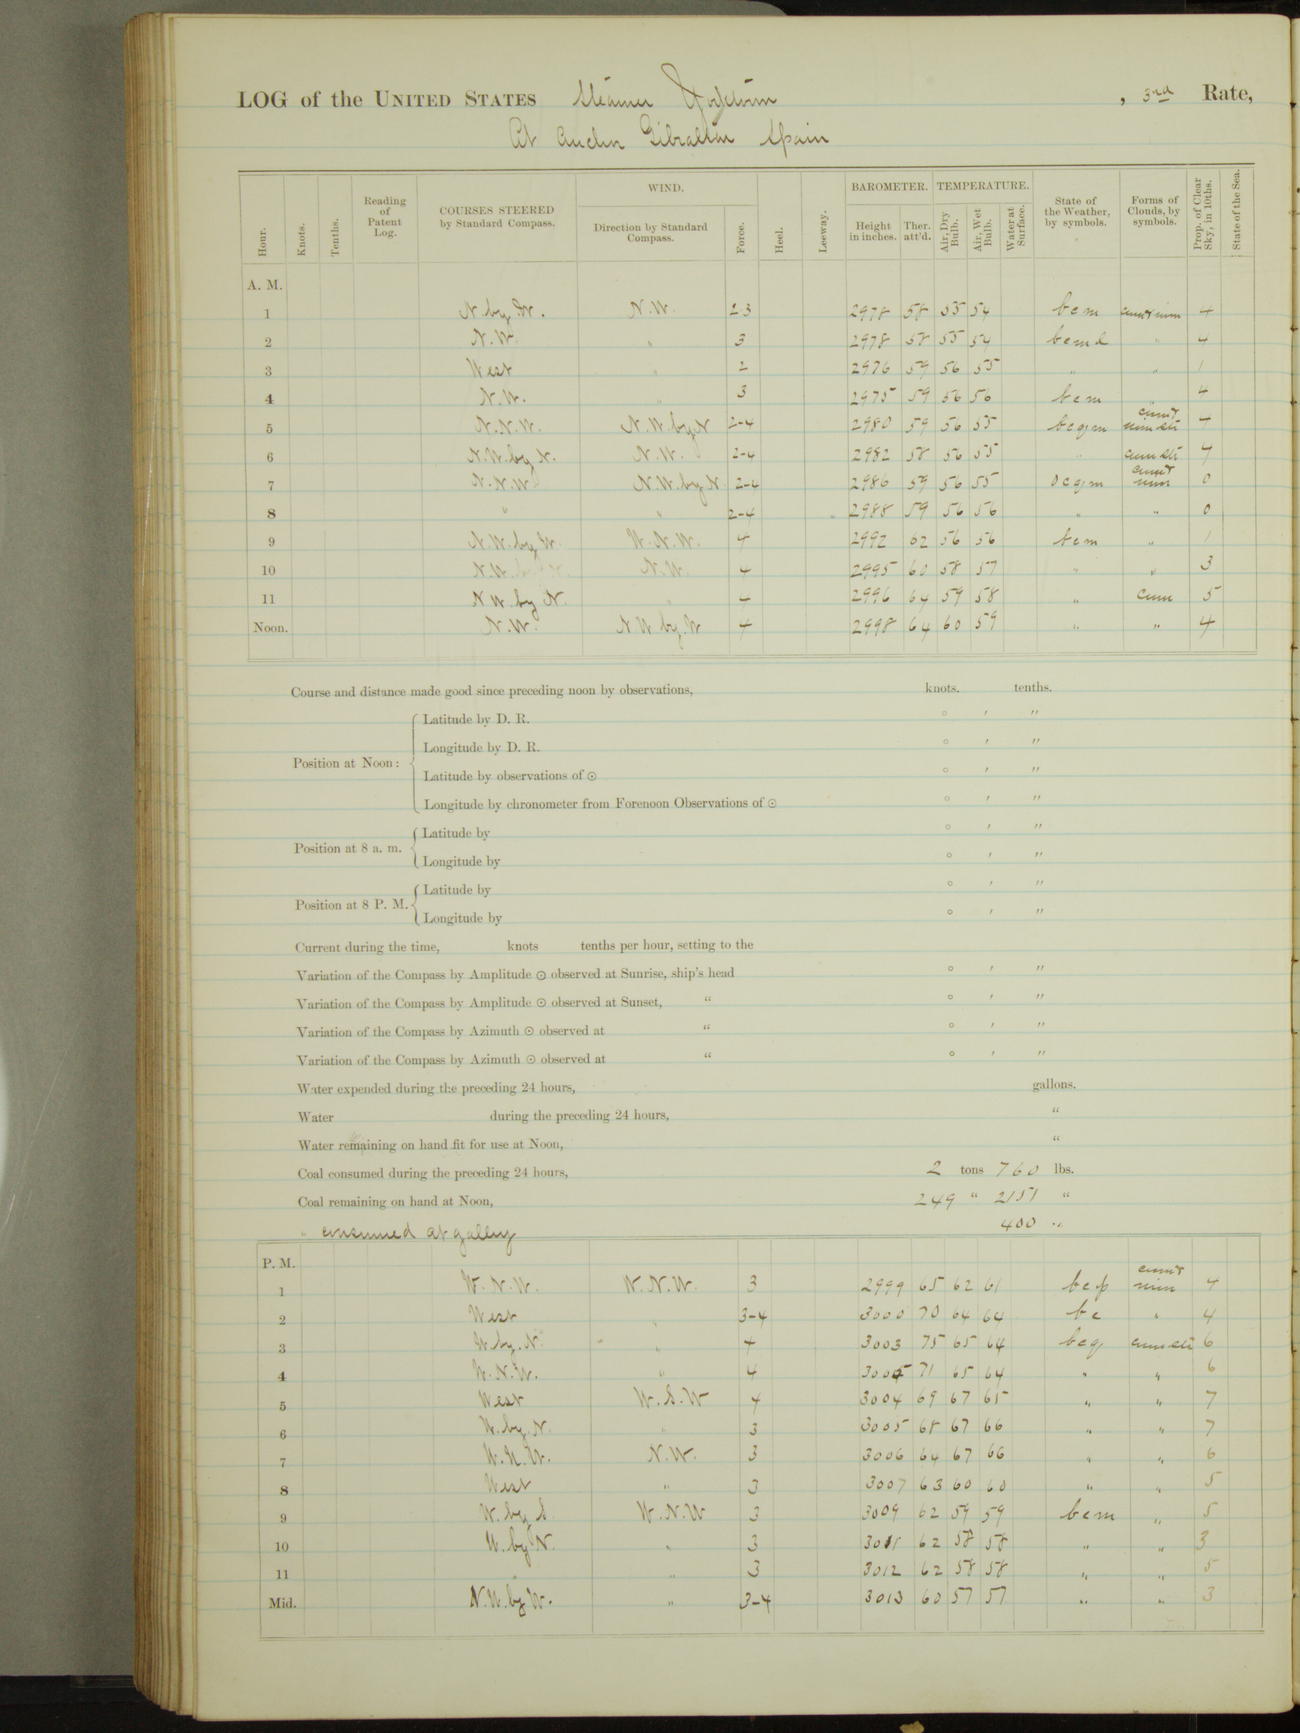 LOG of the UNITED STATES Steamer Yorktown, 3rd Rate,
At anchor Gibraltar Spain
Hour. Knots. Tenths. Reading of Patent Log. COURSES STEERED by Standard Compass. WIND. Direction by Standard Compass. Force. Heel. Leeway. BAROMETER. Height in inches. Ther. att'd. TEMPERATURE. Air, Dry Bulb. Air, Wet Bulb. Water at Surface. State of the Weather, by symbols. Forms of Clouds, by symbols. Prop. of Clear Sky, in 10ths. State of the Sea.
A. M.
1 N. by W. N.W. 2 3 2978 58 55 54 bcm 4
2 N.W. " 3 2978 58 55 54 bcmd " 4
3 West " 2 2976 59 56 55 " " 1
4 N.W. " 3 2975 59 56 56 bcm " 4
5 N.N.W. N.W. by N 2-4 2980 59 56 55 bcqm
6 N.W. by N. N.W. 2-4 2982 58 56 55 " cum str 7
7 N.N.W N.W. by N. 2-4 2986 59 56 55 ocqm 0
8 " " 2-4 2988 59 56 56 " " 0
9 N.W. by W. W.N.W. 4 2992 62 56 56 bcm " 1
10 N.W. N.W. 4 2995 60 58 57 " " 3
11 NW by N. " 4 2996 64 59 58 " cum 5
Noon. N.W. NW by W 4 2998 64 60 59 " " 4
Course and distance made good since preceding noon by observations, knots. tenths.
Position at Noon: Latitude by D. R. ° ′ ″
Longitude by D. R. ° ′ ″
Latitude by observations of ☉ ° ′ ″
Longitude by chronometer from Forenoon Observations of ☉ ° ′ ″
Position at 8 a. m. Latitude by ° ′ ″
Longitude by ° ′ ″
Position at 8 P. M. Latitude by ° ′ ″
Longitude by ° ′ ″
Current during the time, knots tenths per hour, setting to the
Variation of the Compass by Amplitude ☉ observed at Sunrise, ship's head ° ′ ″
Variation of the Compass by Amplitude ☉ observed at Sunset, " ° ′ ″
Variation of the Compass by Azimuth ☉ observed at " ° ′ ″
Variation of the Compass by Azimuth ☉ observed at " ° ′ ″
Water expended during the preceding 24 hours, gallons.
Water during the preceding 24 hours, "
Water remaining on hand fit for use at Noon, "
Coal consumed during the preceding 24 hours, 2 tons 760 lbs.
Coal remaining on hand at Noon, 249 " 2151 "
" consumed at galley 400 "
P. M.
1 W.N.W. W.N.W. 3 2999 65 62 61 bcp 4
2 West " 3-4 3000 70 64 64 bc " 4
3 W by N. " 4 3003 75 65 64 bcq cum str 6
4 W.N.W. " 4 71 65 64 " " 6
5 West W.S.W 4 3004 69 67 65 " " 7
6 W. by N. " 3 3005 68 67 66 " " 7
7 W.N.W. N.W. 3 3006 64 67 66 " " 6
8 West " 3 3007 63 60 60 " " 5
9 W. by S W.N.W 3 3009 62 59 59 bcm " 5
10 W. by N. " 3 3011 62 58 58 " " 3
11 " " 3 3012 62 58 58 " " 5
Mid. N.W. by W. " 3-4 3013 60 57 57 " " 3